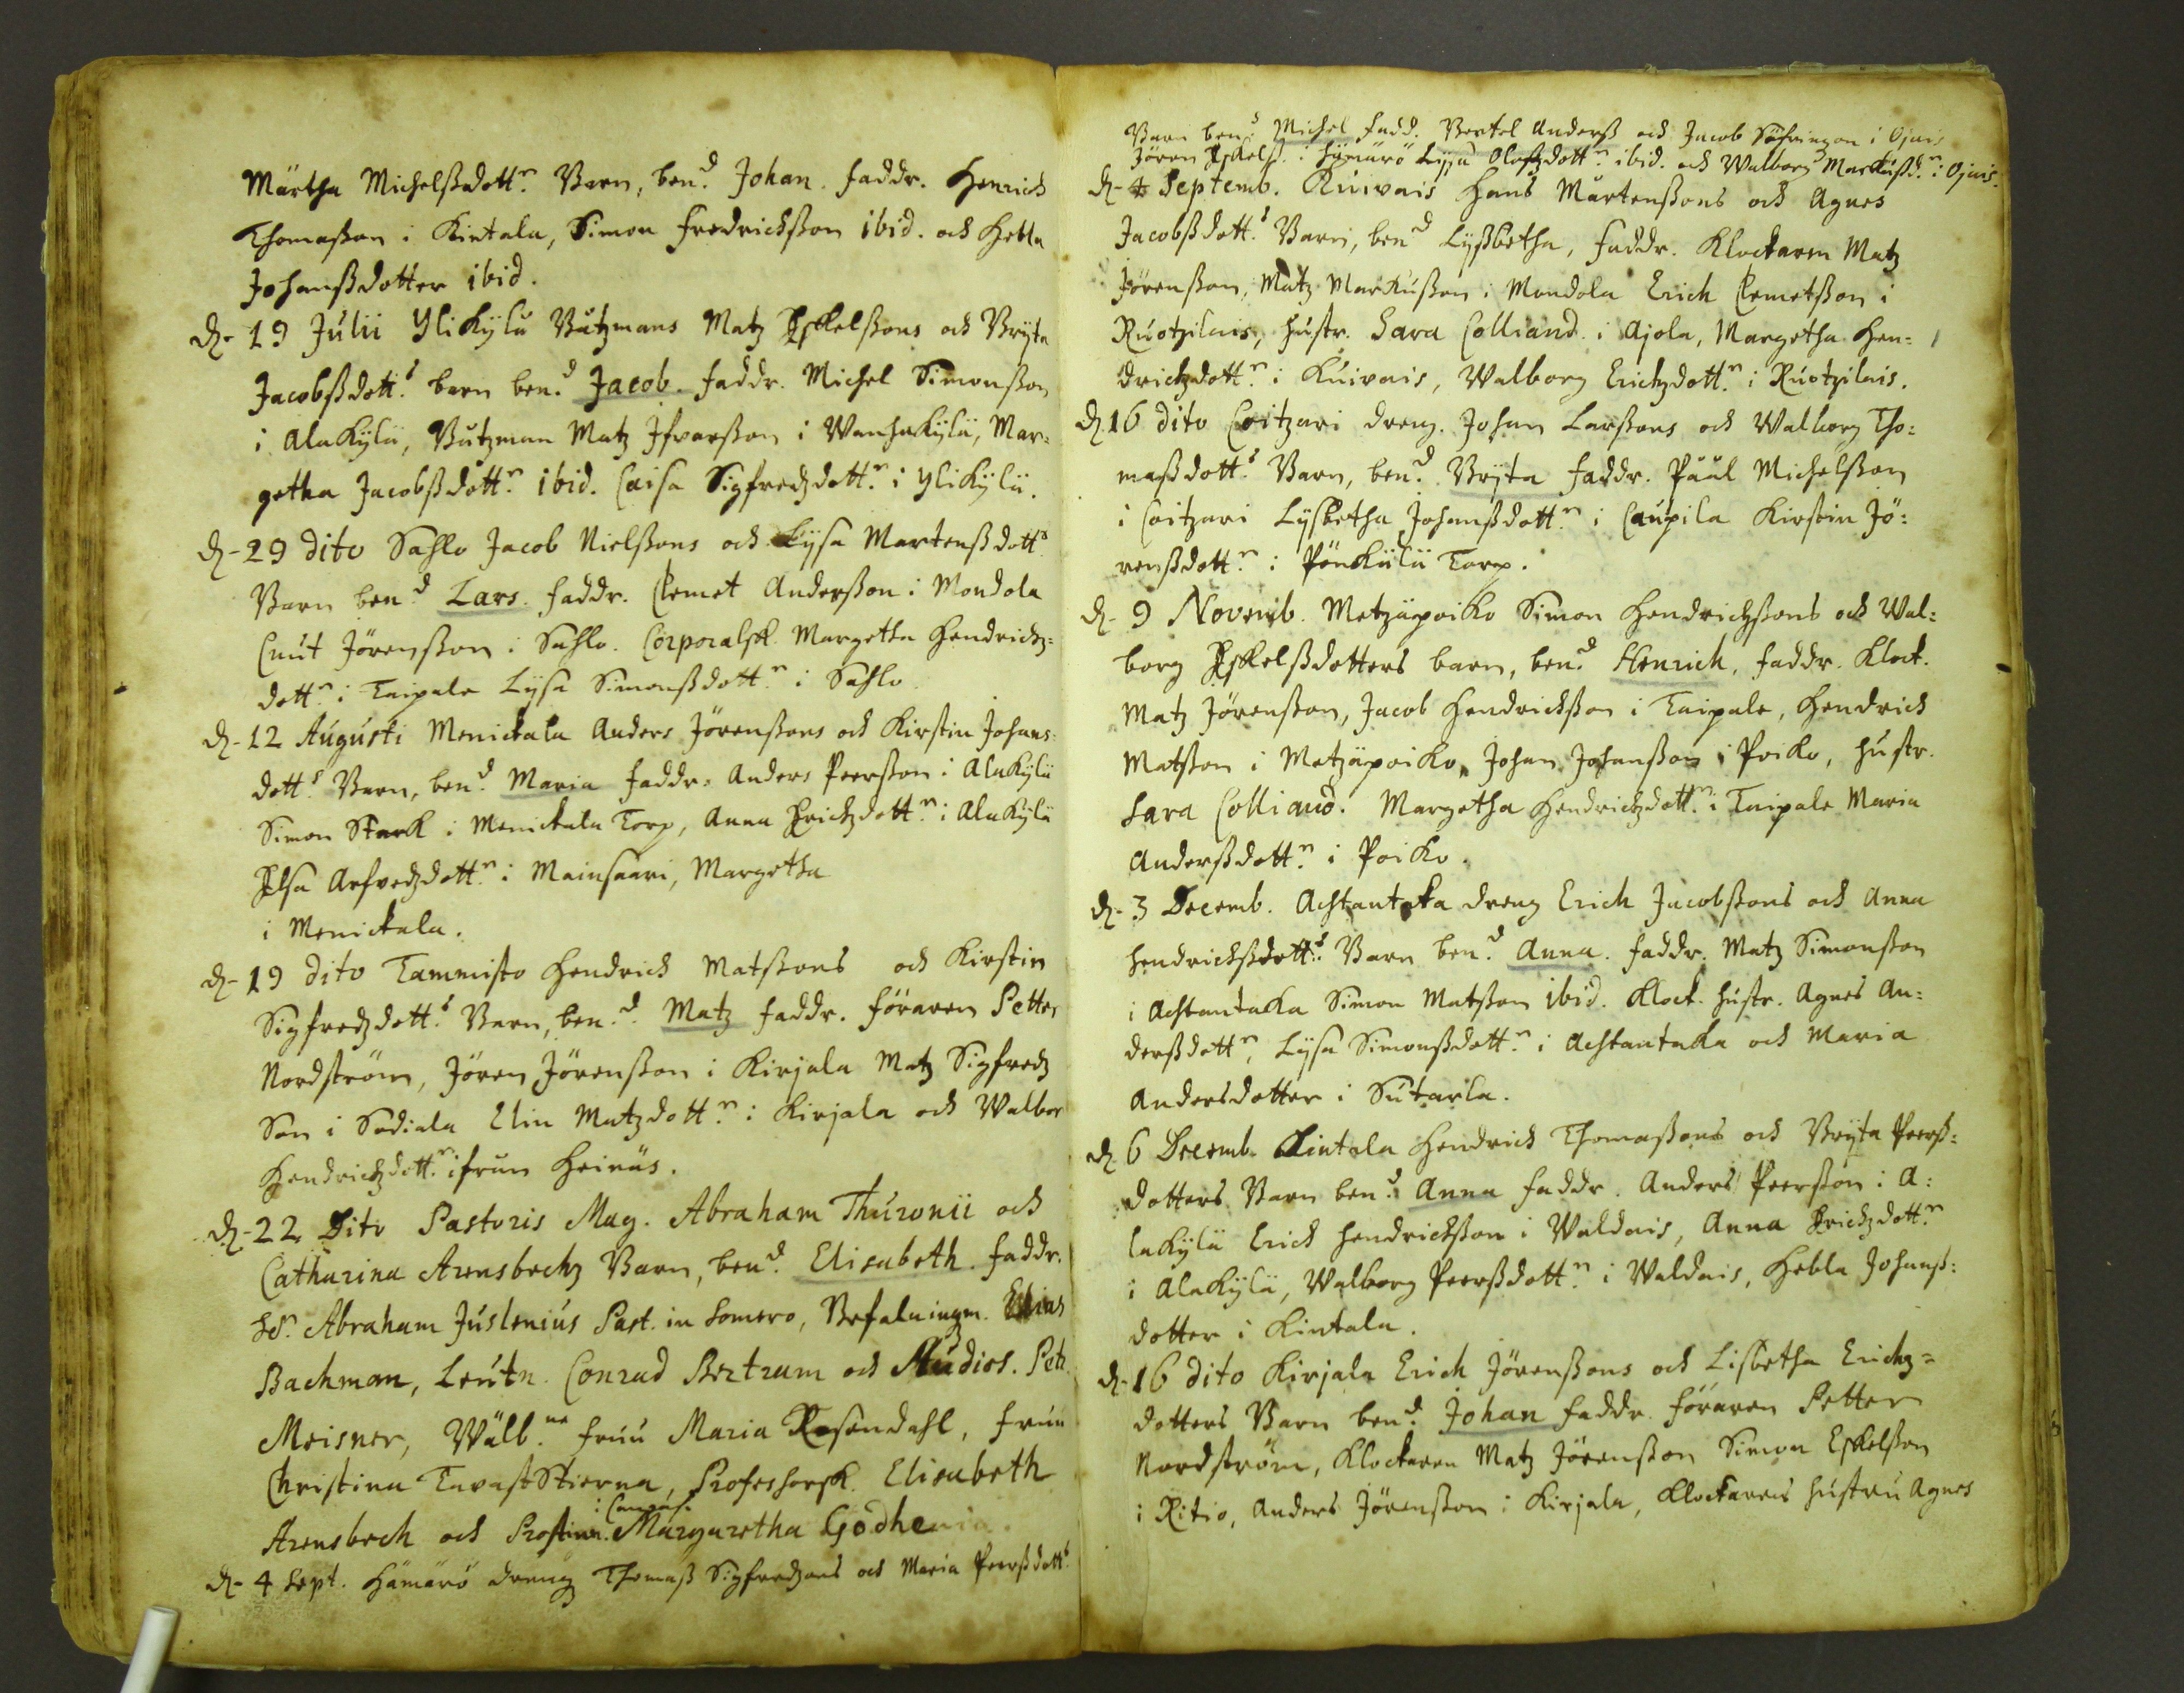 Märtha Michelßdott:n Barn, ben:d Johan. faddr. Henrich
Thomaßon i Kintala, Simon Fredrichßon ibid. och Hebla
Johanßdotter ibid.
d. 19 Julii Yli Kylä Båtzmans Matz Eskelßons och Bryta
Jacobßdott:s barn ben:d Jacob. faddr. Michel Simonßon
i AlaKylä, Båtzman Matz Ifvarßon i WanhaKylä, Mar=
getha Jacobßdott:r ibid. Caisa Sigfredzdott:r i YliKylä.
d. 29 dito Sahlo Jacob Nielßons och Lysa Martenßdott:s
Barn ben:d Lars. faddr. Clemet Anderßon i Mondola
Cnut Jörenßon i Sahlo. Corporalsk. Margetha Hendrichz=
dott:r i Taipale Lysa Simonßdott:r i Sahlo
d. 12 Augusti Menickala Anders Jörenßons och Kirstin Johans=
dott:s Barn, ben:d Maria faddr. Anders Peerßon i AlaKylä
Simon Stark i Menickala Torp, Anna Erichzdott:r i AlaKylä
Elsa Arfvedzdott:r i Mainsaari, Margetha
i Menickala.
d. 19 dito Tammisto Hendrich Matßons och Kirstin
Sigfredzdott:s Barn, ben:d Matz faddr. föraren Petter
Nordström, Jören Jörenßon i Kirjala Matz Sigfredz
Son i Sodiala Elin Matzdott:r i Kirjala och Walbor
Hendrichzdott:r ifrån Heinäs.
d. 22 Dito Pastoris Mag. Abraham Thuronii och
Catharina Arensbechz Barn, ben:d Elisabeth. faddr.
Hr. Abraham Juslenius Past. in Somero, Befalningzm. Elias
Bachman, Leutn. Conrad Bertram och Studios. Petr.
Meisner, Wälb:ne fruu Maria Rosendahl, fruu
Christina TavastStierna, Professorsk. Elisabeth
Arensbech och Prostinn. Margaretha Godhenia.
d. 4 Sept. Hämärö dreng Thomaß Sigfredzons och Maria Peerßdott:s
Barn ben:d Michel fadd. Bertel Anderß och Jacob Söfringzon i Ojais
Jören Eskelß. i Hämärö Lysa Olofzdott:r ibid. och Walborg Markußd:r i Ojais.
d. 4 Septemb. Kuivais Hans Mårtenßons och Agnes
Jacobßdott:s Barn, ben:d Lyßbetha, faddr. Klockaren Matz
Jörenßon, Matz Markußon i Mondola Erich Clemetßon i
Ruotzilais, hustr. Sara Colliand. i Ajola, Margetha Hen=
drichzdott:r i Kuivais, Walborg Erichzdott:r i Ruotzilais.
d. 16 dito Coitzari dreng. Johan Larßons och Walborg Tho=
maßdott:s Barn, ben:d Bryta faddr. Påål Michelßon
i Coitzari Lysbetha Johanßdott:r i Caupila Kirstin Jö=
renßdott:r i PönKälä Torp.
d. 9 Novemb. Metzäpoiko Simon Hendrichßons och Wal=
borg Eskelßdotters barn, ben:d Henrich, faddr. Klock.
Matz Jörenßon, Jacob Hendrichßon i Taipale, Hendrich
Matßon i Metzäpoiko, Johan Johanßon i Poiko, hustr.
Sara Colliand. Margetha Hendrichzdott:r i Taipale Maria
Anderßdott:r i Poiko.
d. 3 Decemb. Achtantaka dreng Erich Jacobßons och Anna
Hendrichßdott:s Barn ben:d Anna. faddr. Matz Simonßon
i Achtantaka Simon Matßon ibid. Klock. hustr. Agnes An=
derßdott:r, Lysa Simonßdott:r i Achtantaka och Maria
Andersdotter i Sutarla.
d. 6 Decemb. Kintala Hendrich Thomaßons och Bryta Peerß=
dotters Barn ben:d Anna faddr. Anders Peerßon i A=
laKylä Erich Hendrichßon i Waldais, Anna Erichzdott:r
i AlaKylä, Walborg Peerßdott:r i Waldais, Hebla Johanß=
dotter i Kintala.
d. 16 dito Kirjala Erich Jörenßons och Lisbetha Erichz=
dotters Barn ben:d Johan faddr. föraren Petter
Nordström, Klockaren Matz Jörenßon Simon Eskelßon
i Ritio, Anders Jörenßon i Kirjala, Klockarens hustru Agnes